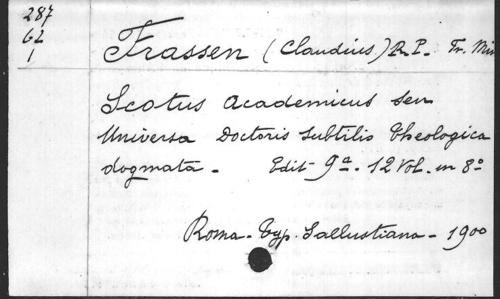 287
62
1
Frassen (Claudius) R. P. Fr. Min
Scotus Academicus seu
Universa Doctoris Subtilis Theologica
dogmata - Edit 9ª - 12 Vol. in 8º
Roma - Typ. Sallustiana - 1900